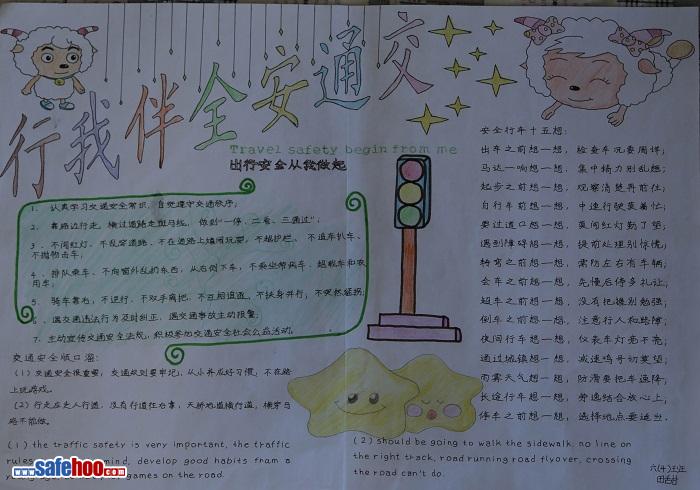 交通安全伴我行
Travel safety begin from me
出行安全从我做起
1、认真学习交通安全常识，自觉遵守交通秩序；
2、靠路边行走，横过道路走斑马线，做到"一停、二看、三通过"；
3、不闯红灯，不乱穿道路，不在道路上嬉闹玩耍，不越护栏，不追车扒车、
不抛物击车；
4、排队乘车，不向窗外乱扔东西，从右侧下车，不乘坐带病车、超载车和农
用车；
5、骑车靠右，不逆行，不双手离把，不互相追逐，不扶身并行，不突然猛拐；
6、遇交通违法行为及时纠正，遇交通事故主动报警；
7、主动宣传交通安全法规，积极参加交通安全社会公益活动。
交通安全顺口溜：
(1)交通安全很重要，交通规则要牢记，从小养成好习惯，不在路
上玩游戏。
(2)行走应走人行道，没有行道往右靠，天桥地道横行道，横穿马
路不能做。
(1) the traffic safety is very important, the traffic
rules mind, develop good habits from a
games on the road.
(2) should be going to walk the sidewalk, no line on
the right track, road running road flyover, crossing
the road can't do.
安全行车十五想：
出车之前想一想，检查车况要周详；
马达一响想一想，集中精力别乱想；
起步之前想一想，观察清楚再前往；
自行车前想一想，中速行驶莫着忙；
要过道口想一想，莫闯红灯勤了望；
遇到障碍想一想，提前处理别惊慌；
转弯之前想一想，需防左右有车辆；
会车之前想一想，先慢后停多礼让；
超车之前想一想，没有把握别勉强；
倒车之前想一想，注意行人和路障；
夜间行车想一想，仪表车灯亮不亮；
通过城镇想一想，减速鸣号切莫望；
雨雾天气想一想，防滑要把车速降；
长途行车想一想，劳逸结合放心上；
停车之前想一想，选择地点要适当。
六(4)
www.safehoo.com